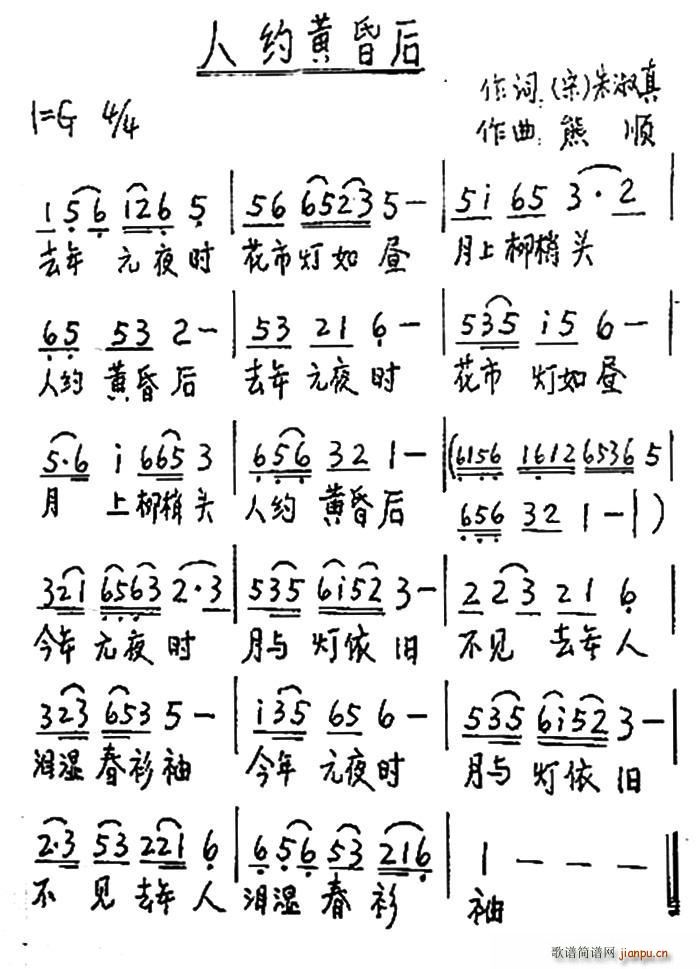 人约黄昏后
1=G 4/4
作词:(宋)朱淑真
作曲:熊 顺
1 5 6 1 2 6 5 | 5 6 6 5 2·3 5 — | 5 i 6 5 3·2 |
去年 元夜时 花市灯如昼 月上柳梢头
6 5 5 3 2 — | 5 3 2 1 6 — | 5 3 5 i 5 6 — |
人约 黄昏后 去年 元夜时 花市 灯如昼
5·6 i 6 6 5 3 | 6 5 6 3 2 1 — | (6 1 5 6 1 6 1 2 6 5 3 6 5 |
月 上柳梢头 人约 黄昏后
6 5 6 3 2 1 — | )
3 2 1 6 5 6 3 2·3 | 5 3 5 6 i 5 2 3 — | 2 2 3 2 1 6 |
今年 元夜时 月与 灯依旧 不见 去年人
3 2 3 6 5 3 5 — | i 3 5 6 5 6 — | 5 3 5 6 i 5 2 3 — |
泪湿 春衫袖 今年 元夜时 月与 灯依旧
2·3 5 3 2 2 1 6 | 6 5 6 5 3 2 1 6 | 1 — — — ‖
不 见 去年人 泪湿 春 衫 袖
歌谱简谱网 jianpu.cn